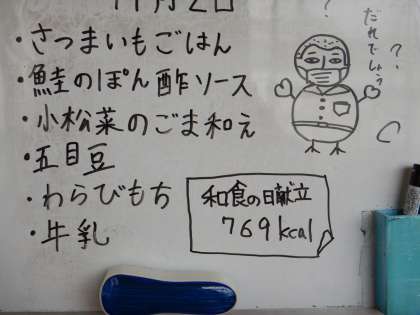 11月2日
・さつまいもごはん
・鮭のぽん酢ソース
・小松菜のごま和え
・五目豆
・わらびもち
・牛乳
和食の日献立
769kcal
?
だれでしょう?